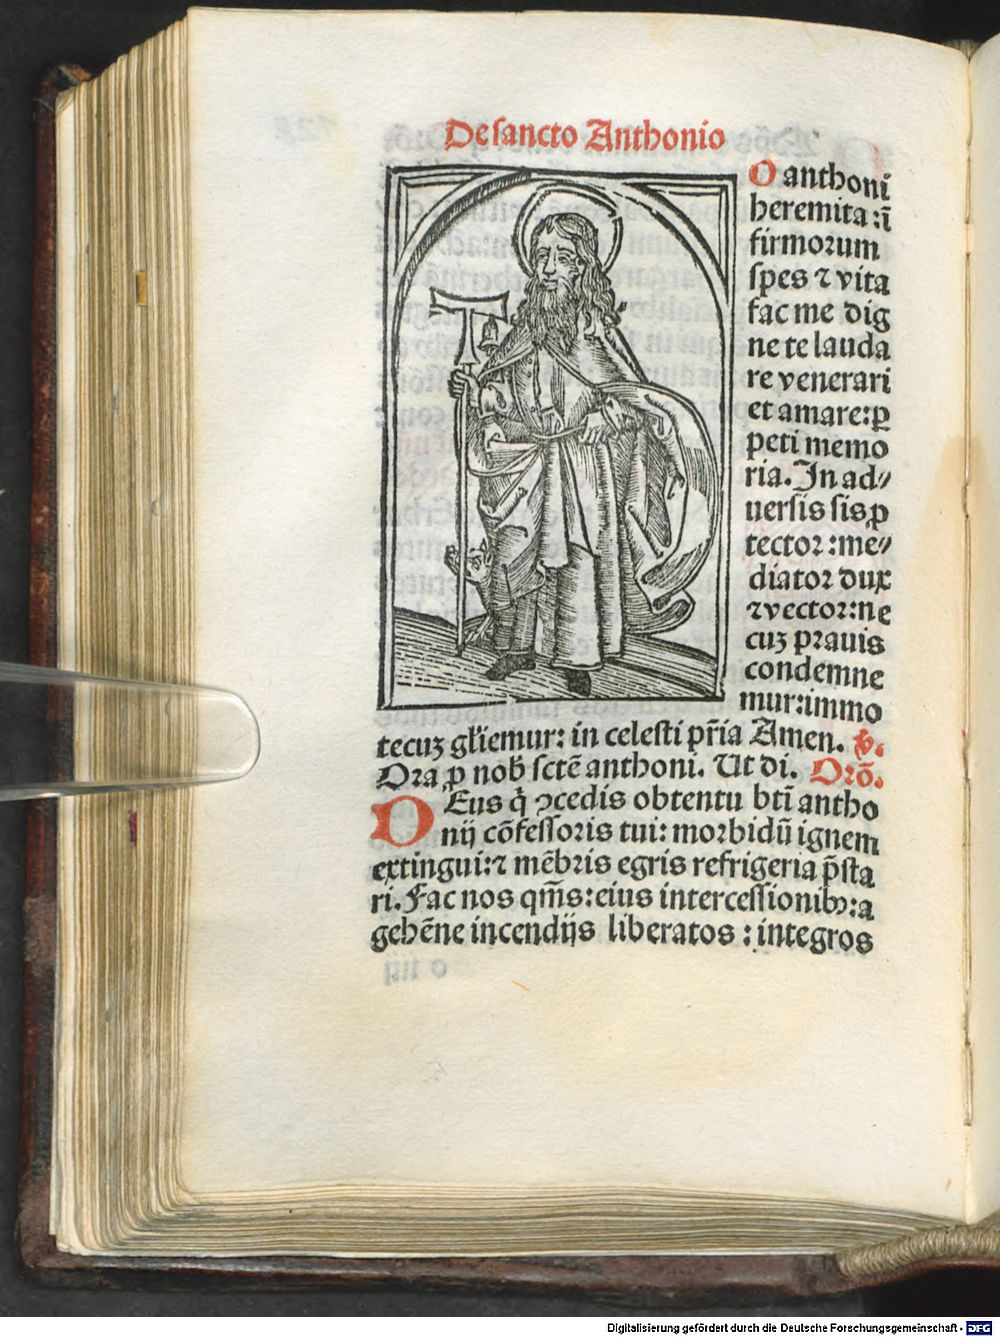 De sancto Anthonio
O anthoni
heremita: ī
firmorum
spes ⁊ vita
fac me dig
ne te lauda
re venerari
et amare: ꝑ
peti memo
ria. In ad⸗
uersis sis ꝓ
tector: me⸗
diator dux
⁊ vector: ne
cuʒ prauis
condemne
mur: immo
tecuʒ gl̄iemur: in celesti pr̄ia Amen. ℣.
Ora ꝓ nob̄ sctē anthoni. Ut di. Orō.
DEus q̇ ꝯcedis obtentu btī antho
nij cōfessoris tui: morbidū ignem
extingui: ⁊ mēbris egris refrigeria p̄sta
ri. Fac nos qm̄s: eius intercessionibꝰ: a
gehēne incendijs liberatos: integros
Digitalisierung gefördert durch die Deutsche Forschungsgemeinschaft - DFG